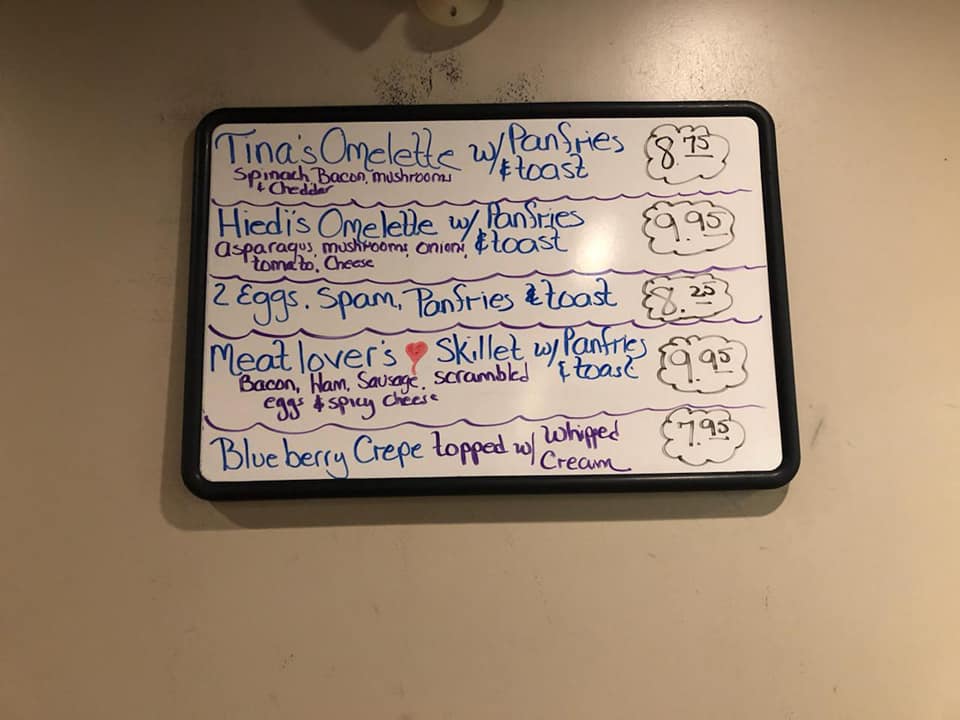 Tina's Omelette w/ Panfries
& toast
Spinach, Bacon, mushrooms
& Cheddar
8.75
Hiedi's Omelette w/ Panfries
& toast
asparagus, mushrooms, onions,
tomato, Cheese
9.95
2 Eggs, Spam, Panfries & toast
8.25
Meatlover's Skillet w/ Panfries
& toast
Bacon, Ham, Sausage, scrambled
eggs & spicy cheese
9.95
Blueberry Crepe topped w/ Whipped
Cream
7.95